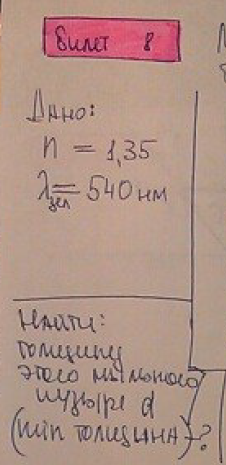 Билет 8
Дано:
n = 1,35
λзел = 540 нм
Найти:
толщину
этого мыльного
пузыре d
(min толщина) - ?